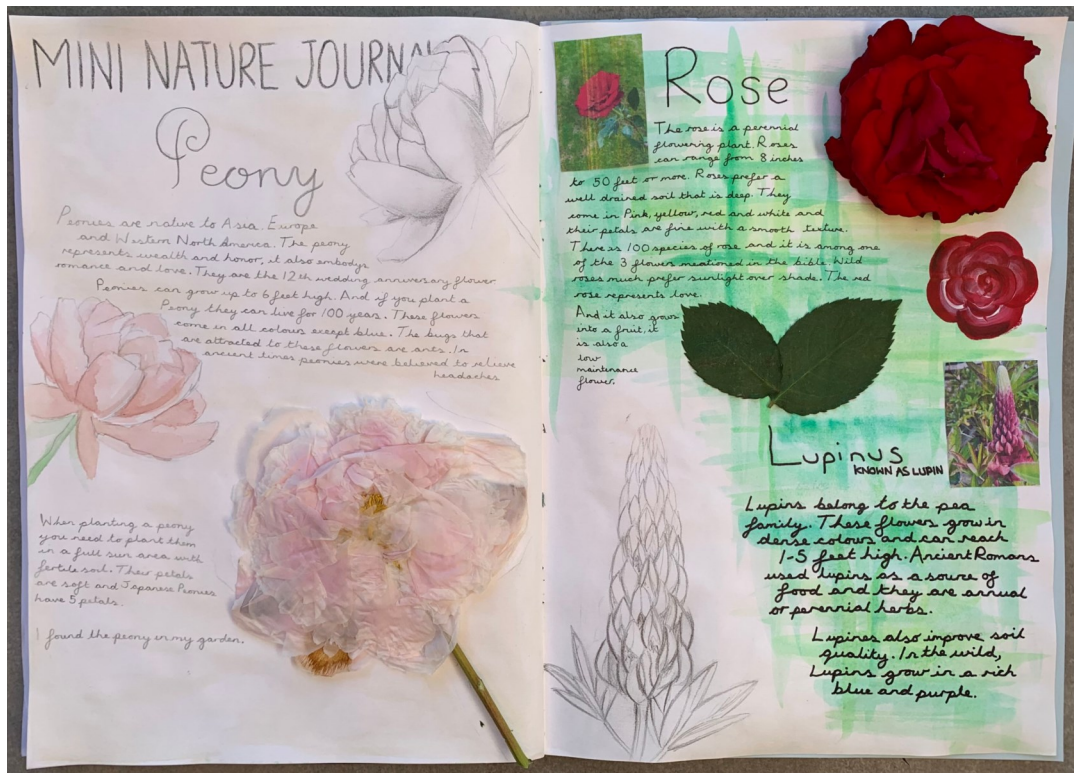 MINI NATURE JOURNAL
Peony
Peonies are native to Asia. Europe
and Western North America. The peony
represents wealth and honor, it also embodys
romance and love. They are the 12th wedding anniversary flower
Peonies can grow up to 6 feet high. And if you plant a
Peony they can live for 100 years. These flowers
come in all colours except blue. The bugs that
are attracted to these flowers are ants. In
ancient times peonies were believed to relieve
headaches
When planting a peony
you need to plant them
in a full sun area with
fertile soil. Their petals
are soft and Japanese Peonies
have 5 petals.
I found the peony in my garden.
Rose
The rose is a perennial
flowering plant. Roses
can range from 8 inches
to 50 feet or more. Roses prefer a
well drained soil that is deep. They
come in Pink, yellow, red and white and
their petals are fine with a smooth texture.
There is 100 species of rose and it is among one
of the 3 flowers mentioned in the bible. Wild
roses much prefer sunlight over shade. The red
rose represents love.
And it also grows
into a fruit, it
is also a
low
maintenance
flower.
Lupinus
KNOWN AS LUPIN
Lupins belong to the pea
family. These flowers grow in
dense colours and can reach
1-5 feet high. Ancient Romans
used lupins as a source of
food and they are annual
or perennial herbs.
Lupines also improve soil
quality. In the wild,
Lupins grow in a rich
blue and purple.